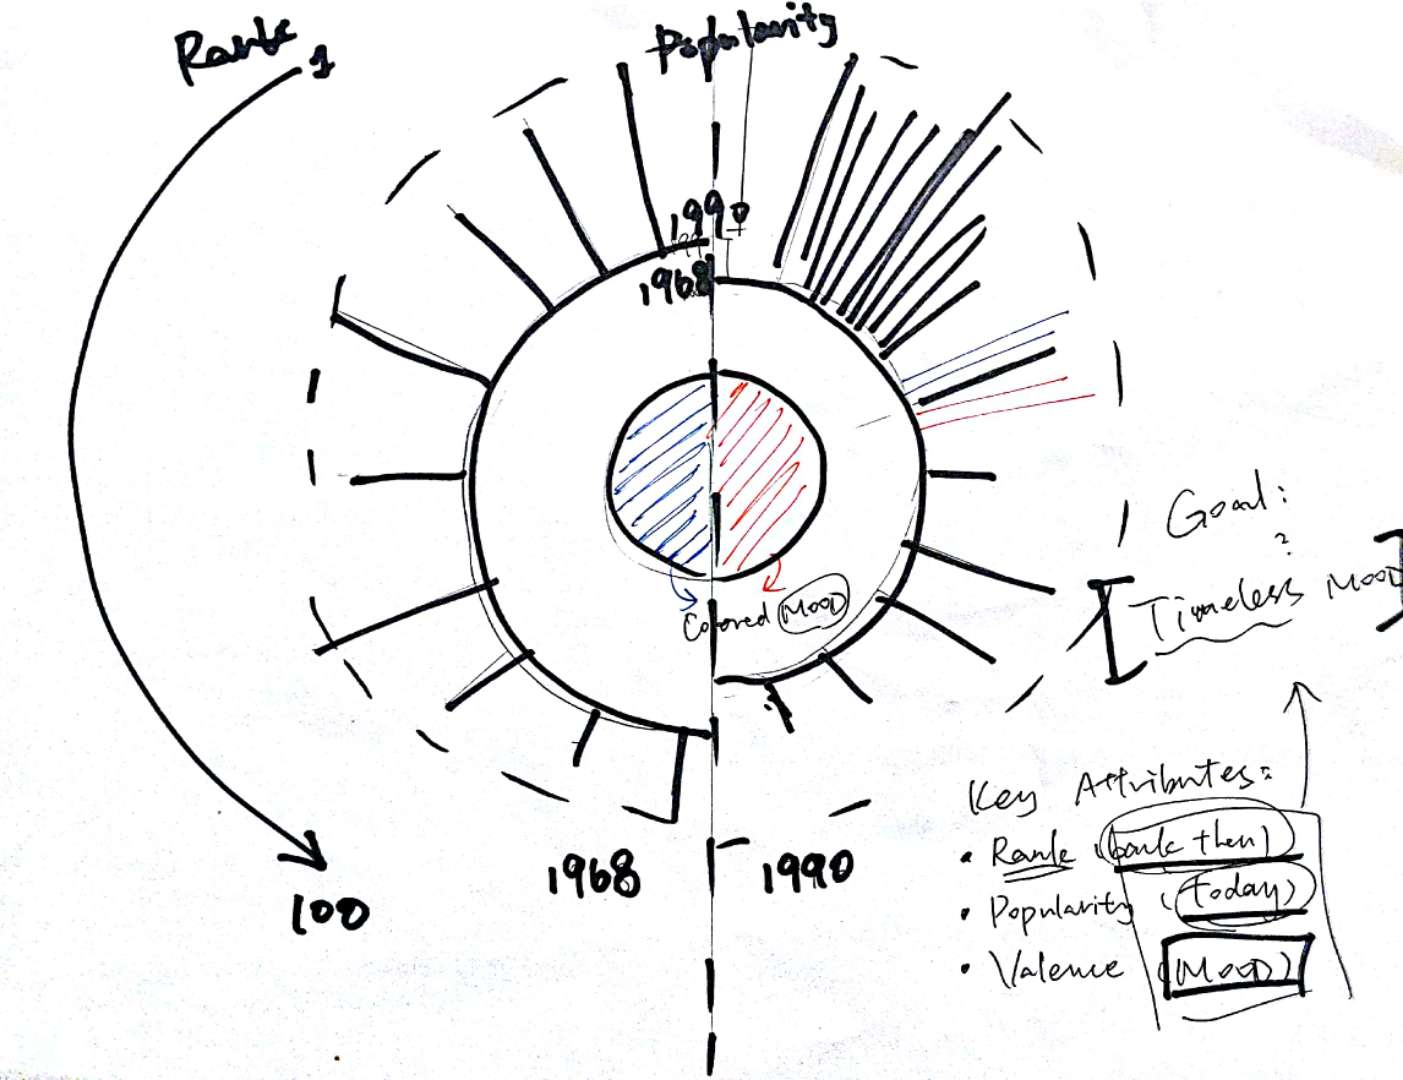 Rank
1
Popularity
1990
1968
Colored MOOD
Goal:
?
Timeless MOOD
Key Attributes:
• Rank (back then)
• Popularity (today)
• Valence (MOOD)
1968
1990
100